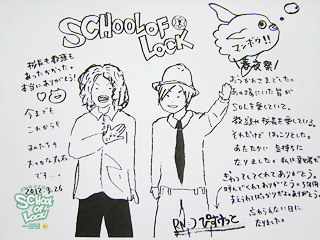 SCHOOL OF LOCK
マンボウ!!
春夜祭!
校長も教頭も
あったかかった。
本当にありがとう!
今までも
これからも
みんなの
大切な存在
です…♪
2012.3.26
SCHOOL OF LOCK!
おつかれさまでした。
あの場にいた皆が
SOLを愛していて、
教頭や校長を愛している。
それだけでほっこりとした。
あたたかい気持ちに
なりました。
きわっていてくれてありがとう。
呼んでくれてありがとう。
忘れらんない日に
なりました。
RN
ぴすけっと